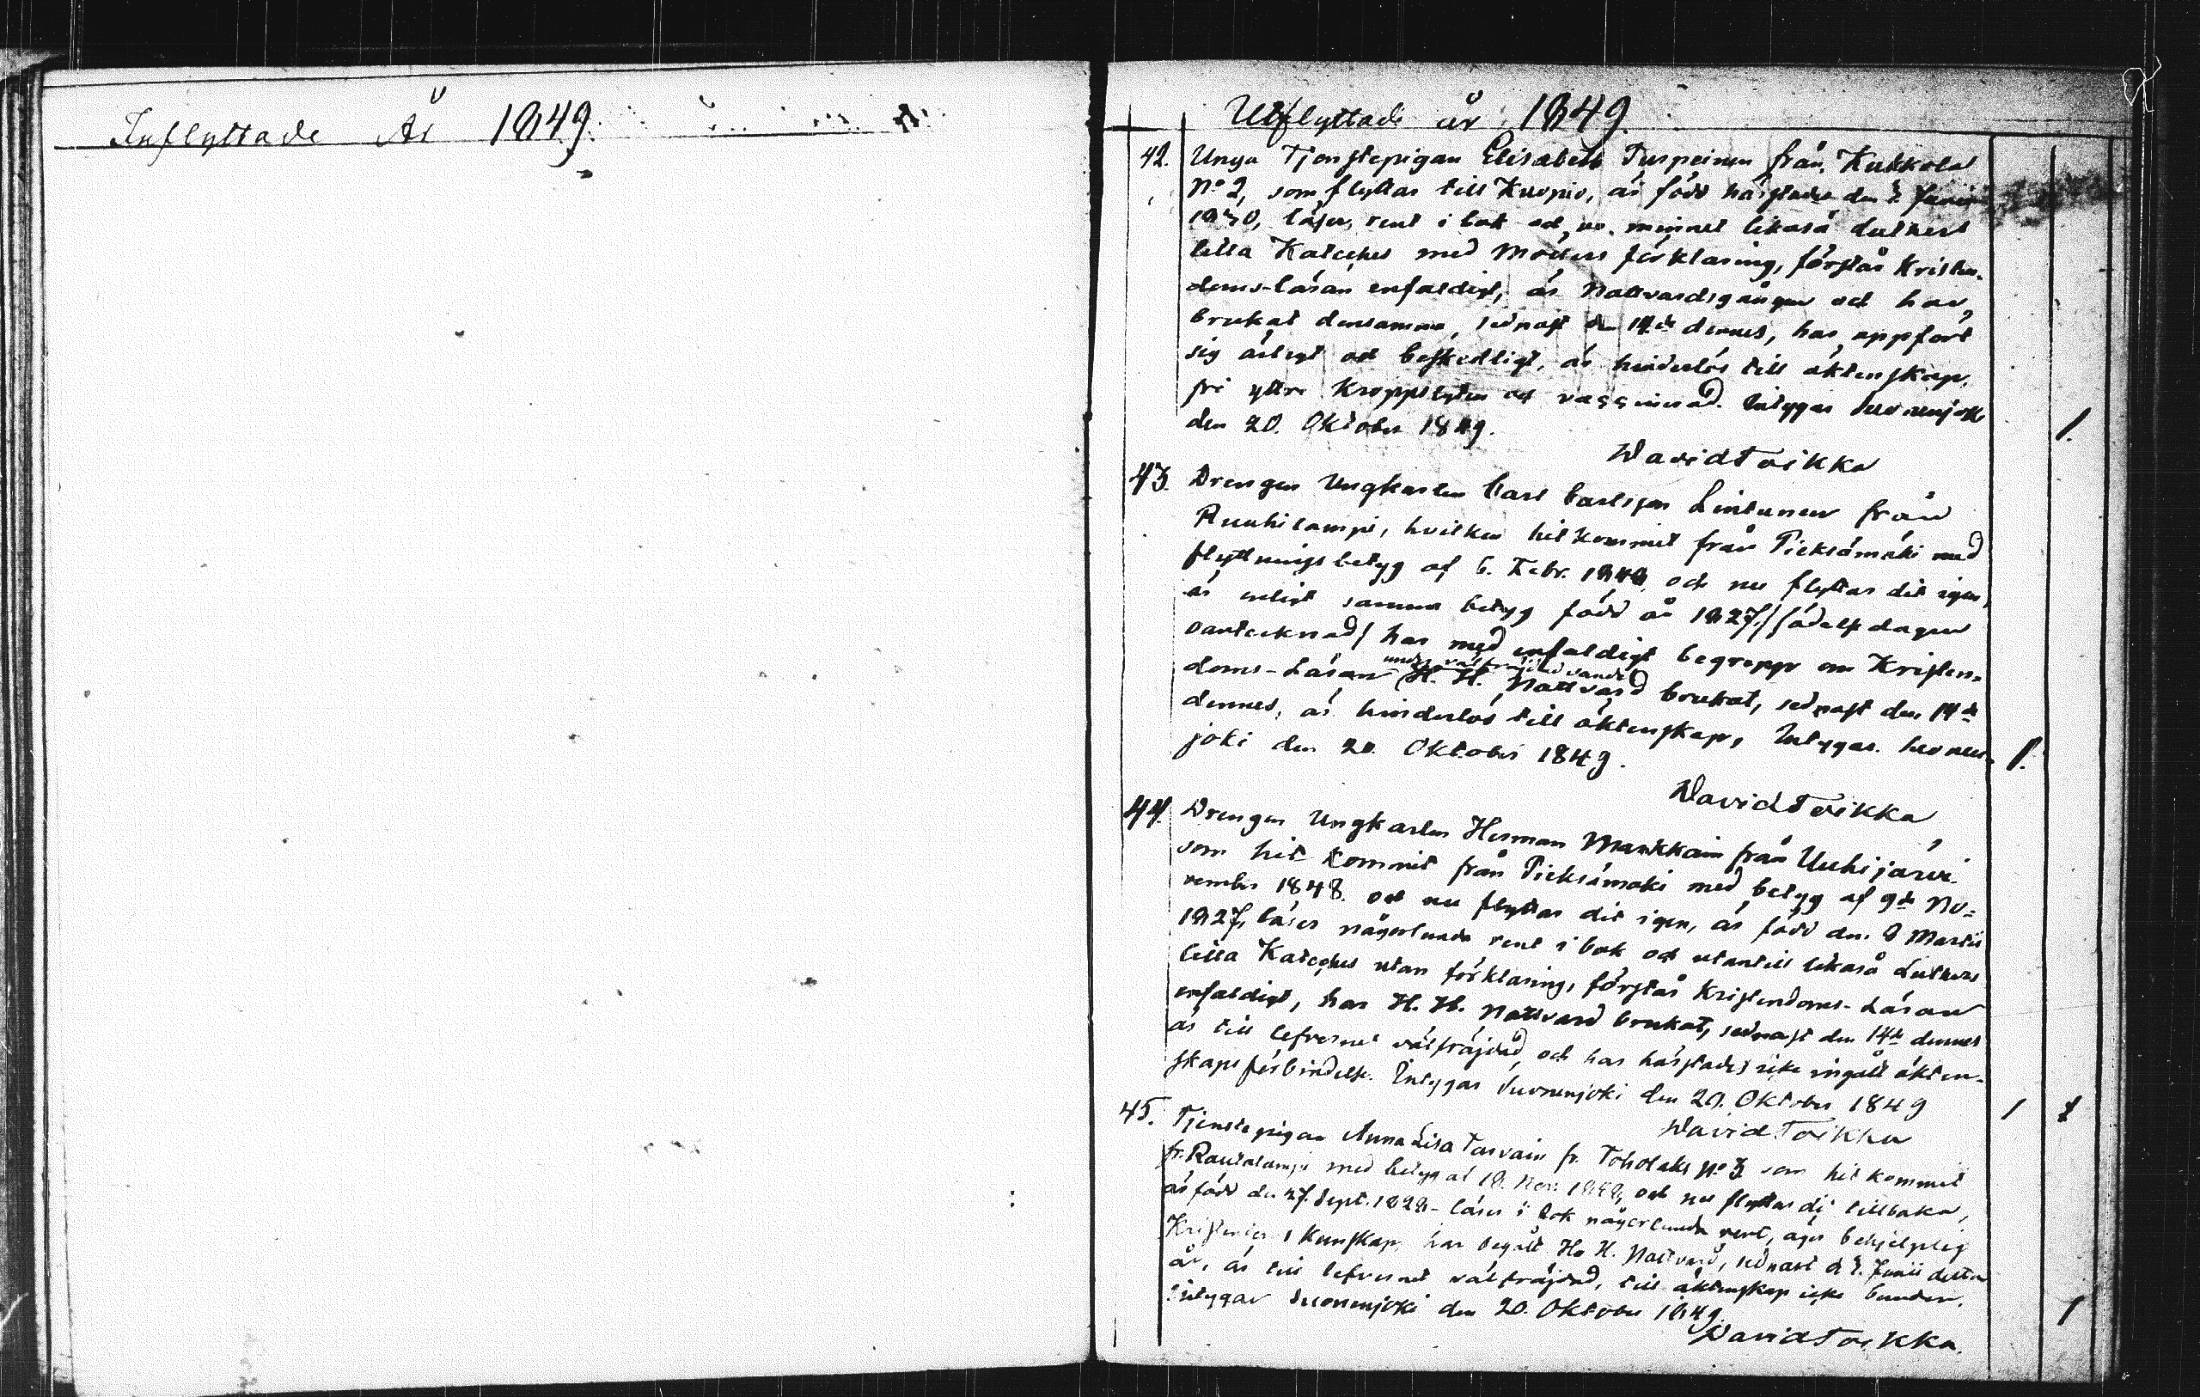 Inflyttade År 1849.
Utflyttade år 1849
42. Unga Tjenstepigan Elisabeth Turpeinen från Kukkola
No 2, som flyttar till Kuopio, är född härstädes den 2 Junii
1830, läser rent i bok och ur minnet likaså Lutheri
lilla Kateches med Möllers förklaring, förstår Kristen-
doms-läran enfaldigt, är Nattvardsgången och har
brukat densamma, sednast den 14de dennes, har uppfört
sig ärligt och beskedligt, är hinderlös till äktenskap,
fri yttre kroppslyten och vaccinerad. Intygar Suonenjoki
den 20. Oktober 1849.
David Toikka
43. Drengen Ungkarlen Carl Carlsson Lintunen från
Ruuhilampi, hvilken hitkommit från Pieksämäki med
flyttningsbetyg af 6. Febr. 1848 och nu flyttar dit igen,
är enligt samma betyg född år 1827, /födelsedagen
oantecknad/ har med enfaldigt begrepp om Kristen-
doms-Läran under välfräjdad vandel H. H. Nattvard brukat, sednast den 14de
dennes, är hinderlös till äktenskap, Intygar. Suonen-
joki den 20. Oktober 1849.
David Toikka
44. Drengen Ungkarlen Herman Markkain från Uuhijärvi
som hit kommit från Pieksämäki med betyg af 9de No-
vember 1848 och nu flyttar dit igen, är född den 9 Martii
1827, läser någorlunda rent i bok och utantill likaså Lutheri
lilla Kateches utan förklaring, förstår Kristendoms-Läran
enfaldigt, har H. H. Nattvard brukat, sednast den 14de dennes
är till lefvernet välfräjdad, och har härstädes icke ingått äkten-
skaps förbindelse. Intygar Suonenjoki den 20. Oktober 1849
David Toikka
45. Tjenstepigan Anna Lisa Tarvain fr. Toholaks No 3 som hit kommit
fr. Rautalampi med betyg af 18. Nov. 1848, och nu flyttar dit tillbaka,
är född den 27. Sept. 1828 - läser i bok någorlunda rent, äger behjelplig
Kristendoms kunskap, har begått H. H. Nattvard, sednast d 2. Junii detta
år, är till lefvernet välfräjdad, till äktenskap icke bunden.
Intygar Suonenjoki den 20. Oktober 1849.
David Toikka.